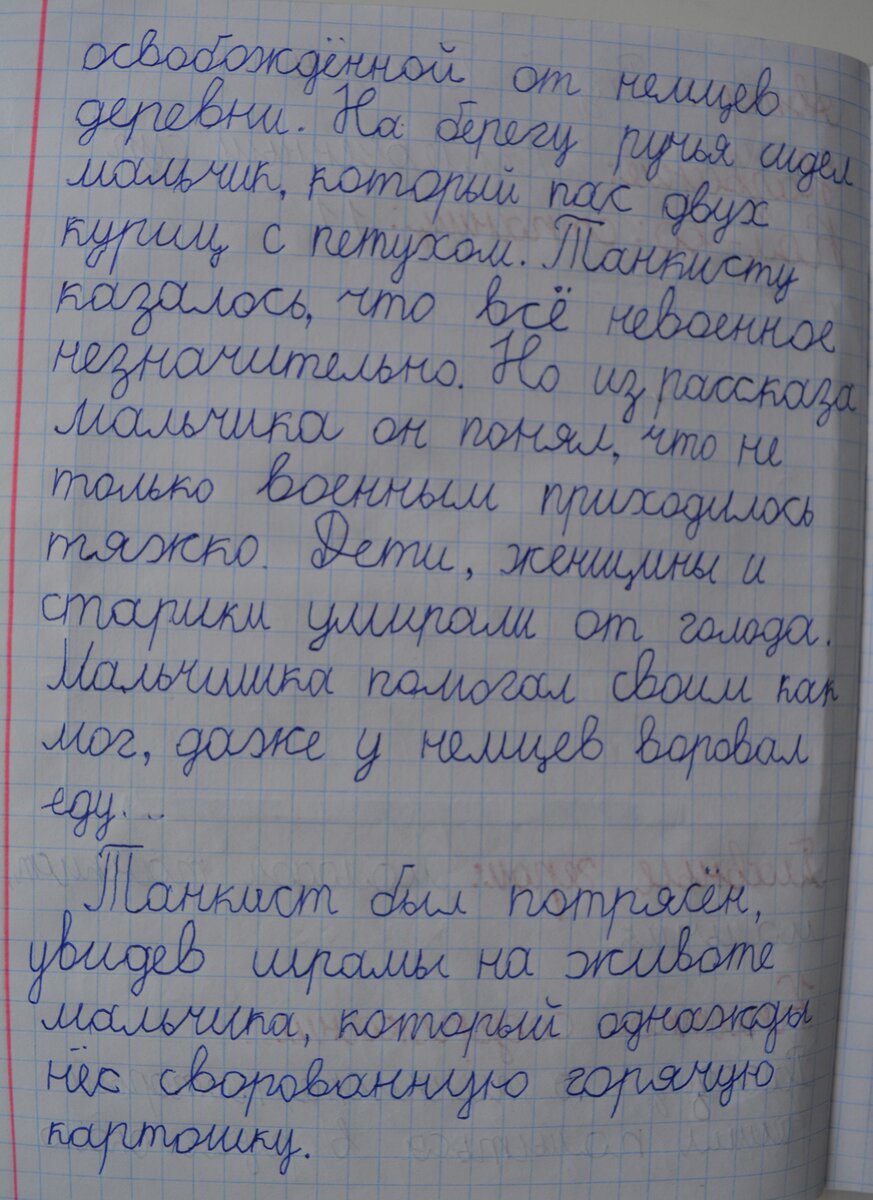 освобождённой от немцев
деревни. На берегу ручья сидел
мальчик, который пас двух
куриц с петухом. Танкисту
казалось, что всё невоенное
незначительно. Но из рассказа
мальчика он понял, что не
только военным приходилось
тяжко. Дети, женщины и
старики умирали от голода.
Мальчишка помогал своим как
мог, даже у немцев воровал
еду...
Танкист был потрясён,
увидев шрамы на животе
мальчика, который однажды
нёс сворованную горячую
картошку.